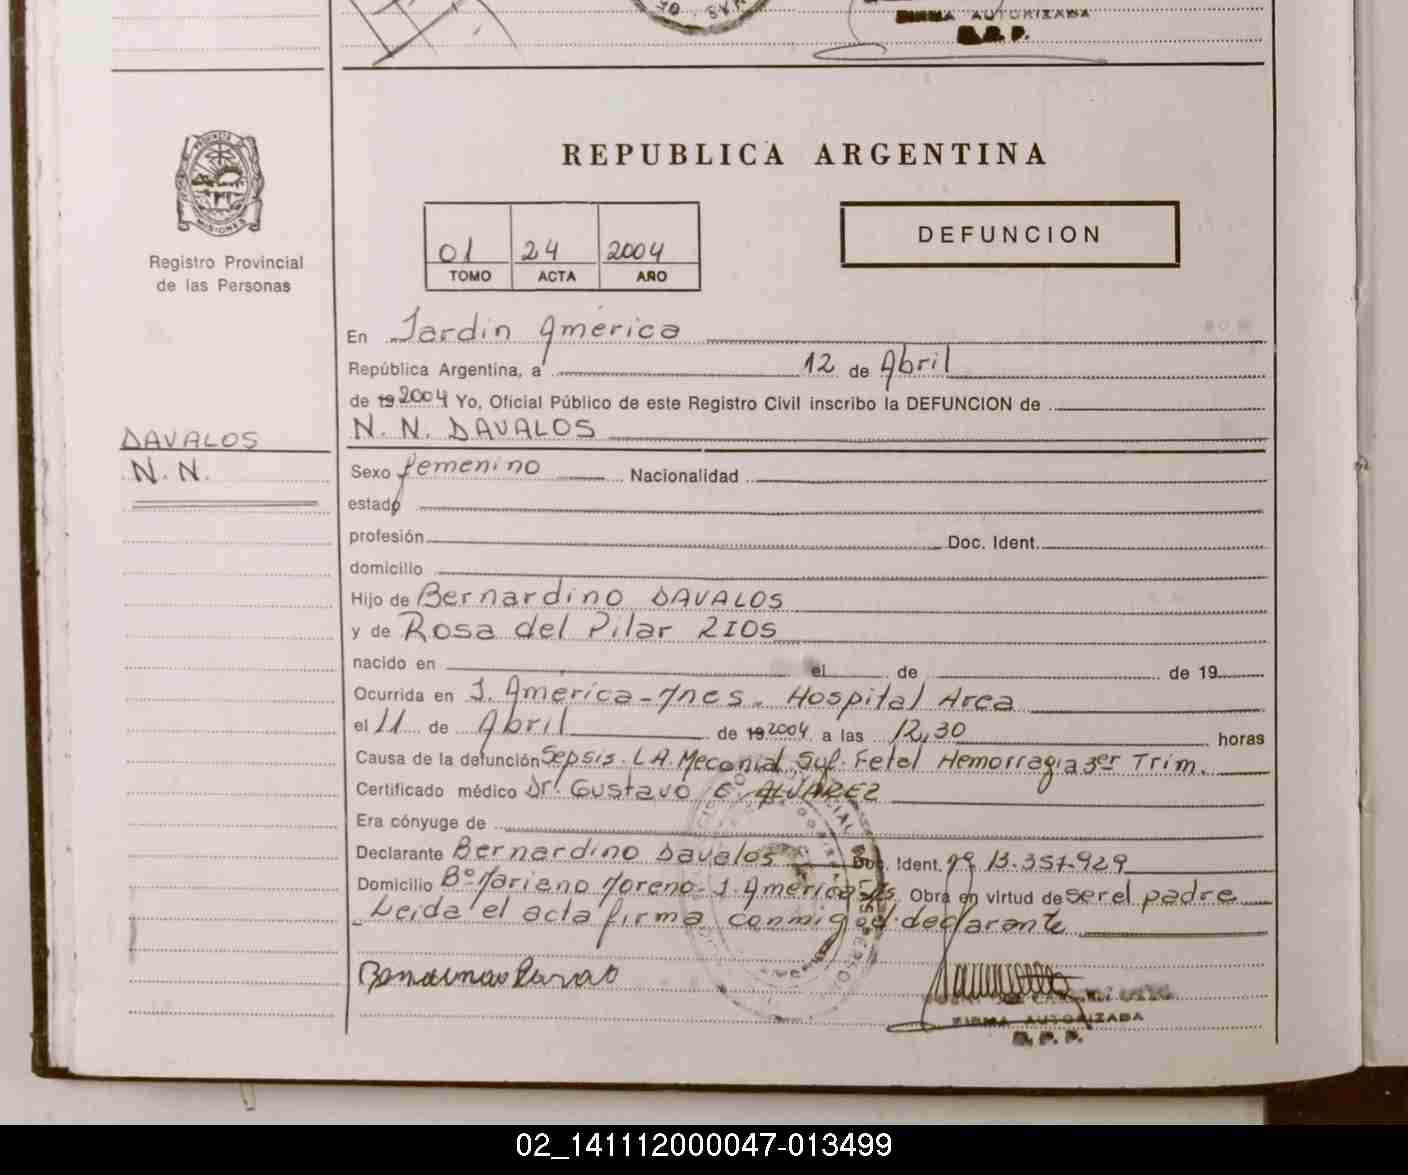 FIRMA AUTORIZADA
R. P. P.
PROVINCIA DE
MISIONES
Registro Provincial
de las Personas
REPUBLICA ARGENTINA
01 24 2004
TOMO ACTA AÑO
DEFUNCION
En Jardin América
República Argentina, a 12 de Abril
de 19 2004 Yo, Oficial Público de este Registro Civil inscribo la DEFUNCION de
DAVALOS
N. N.
N. N. DAVALOS
Sexo femenino Nacionalidad
estado
profesión Doc. Ident.
domicilio
Hijo de Bernardino DAVALOS
y de Rosa del Pilar RIOS
nacido en el de de 19
Ocurrida en J. América - Mnes. Hospital Area
el 11 de Abril de 19 2004 a las 12,30 horas
Causa de la defunción Sepsis. L.A. Meconial. Suf. Fetal Hemorragia 3er Trim.
Certificado médico Dr. Gustavo E. ALVAREZ
Era cónyuge de
Declarante Bernardino Davalos Doc. Ident. nº 13.357.929
Domicilio Bº Mariano Moreno - J. América Obra en virtud de ser el padre
Leida el acta firma conmigo el declarante
FIRMA AUTORIZADA
R. P. P.
02_141112000047-013499